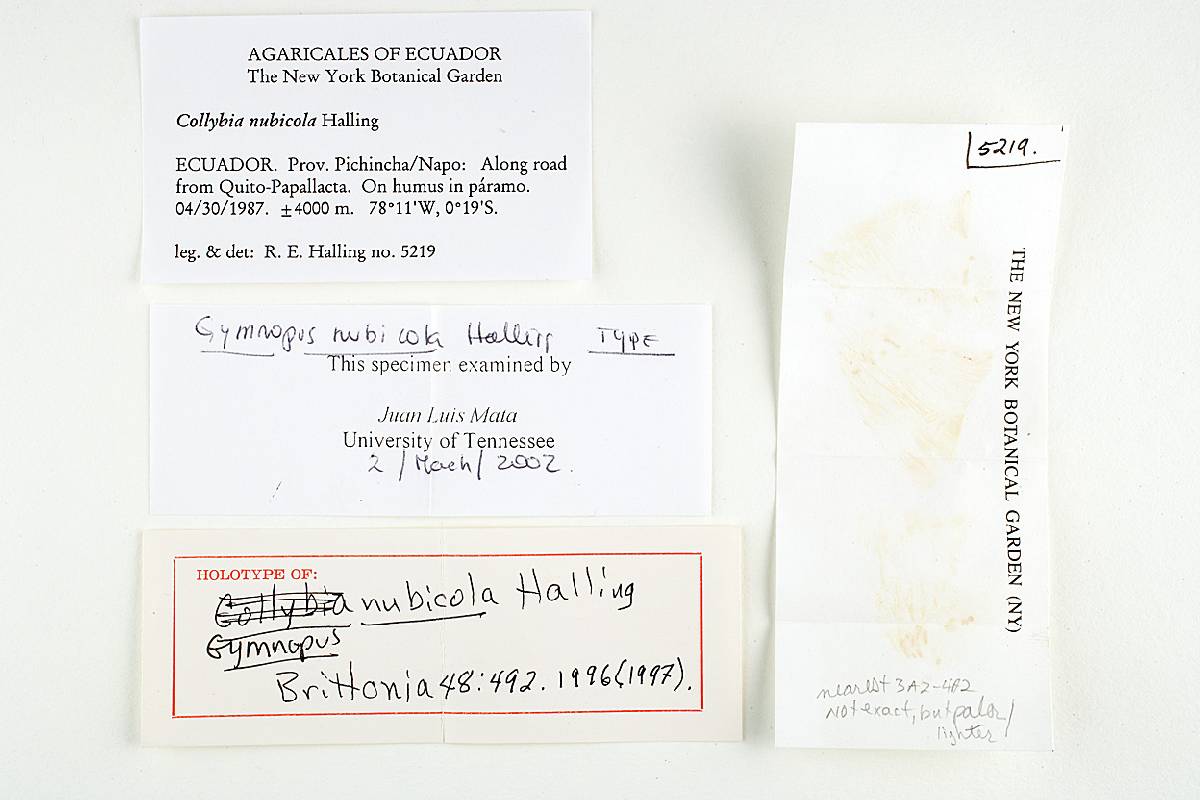 AGARICALES OF ECUADOR
The New York Botanical Garden
Collybia nubicola Halling
ECUADOR. Prov. Pichincha/Napo: Along road
from Quito-Papallacta. On humus in páramo.
04/30/1987. ±4000 m. 78°11'W, 0°19'S.
leg. & det: R. E. Halling no. 5219
Gymnopus nubicola Halling TYPE
This specimen examined by
Juan Luis Mata
University of Tennessee
2 / Mach / 2002.
HOLOTYPE OF:
Collybia nubicola Halling
Gymnopus
Brittonia 48: 492. 1996 (1997).
5219.
THE NEW YORK BOTANICAL GARDEN (NY)
nearest 3A2-4B2
Not exact, but paler/
lighter